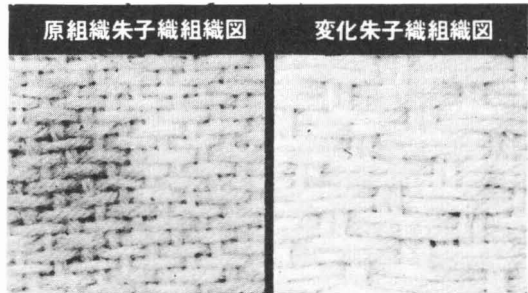 原組織朱子織組織図
変化朱子織組織図